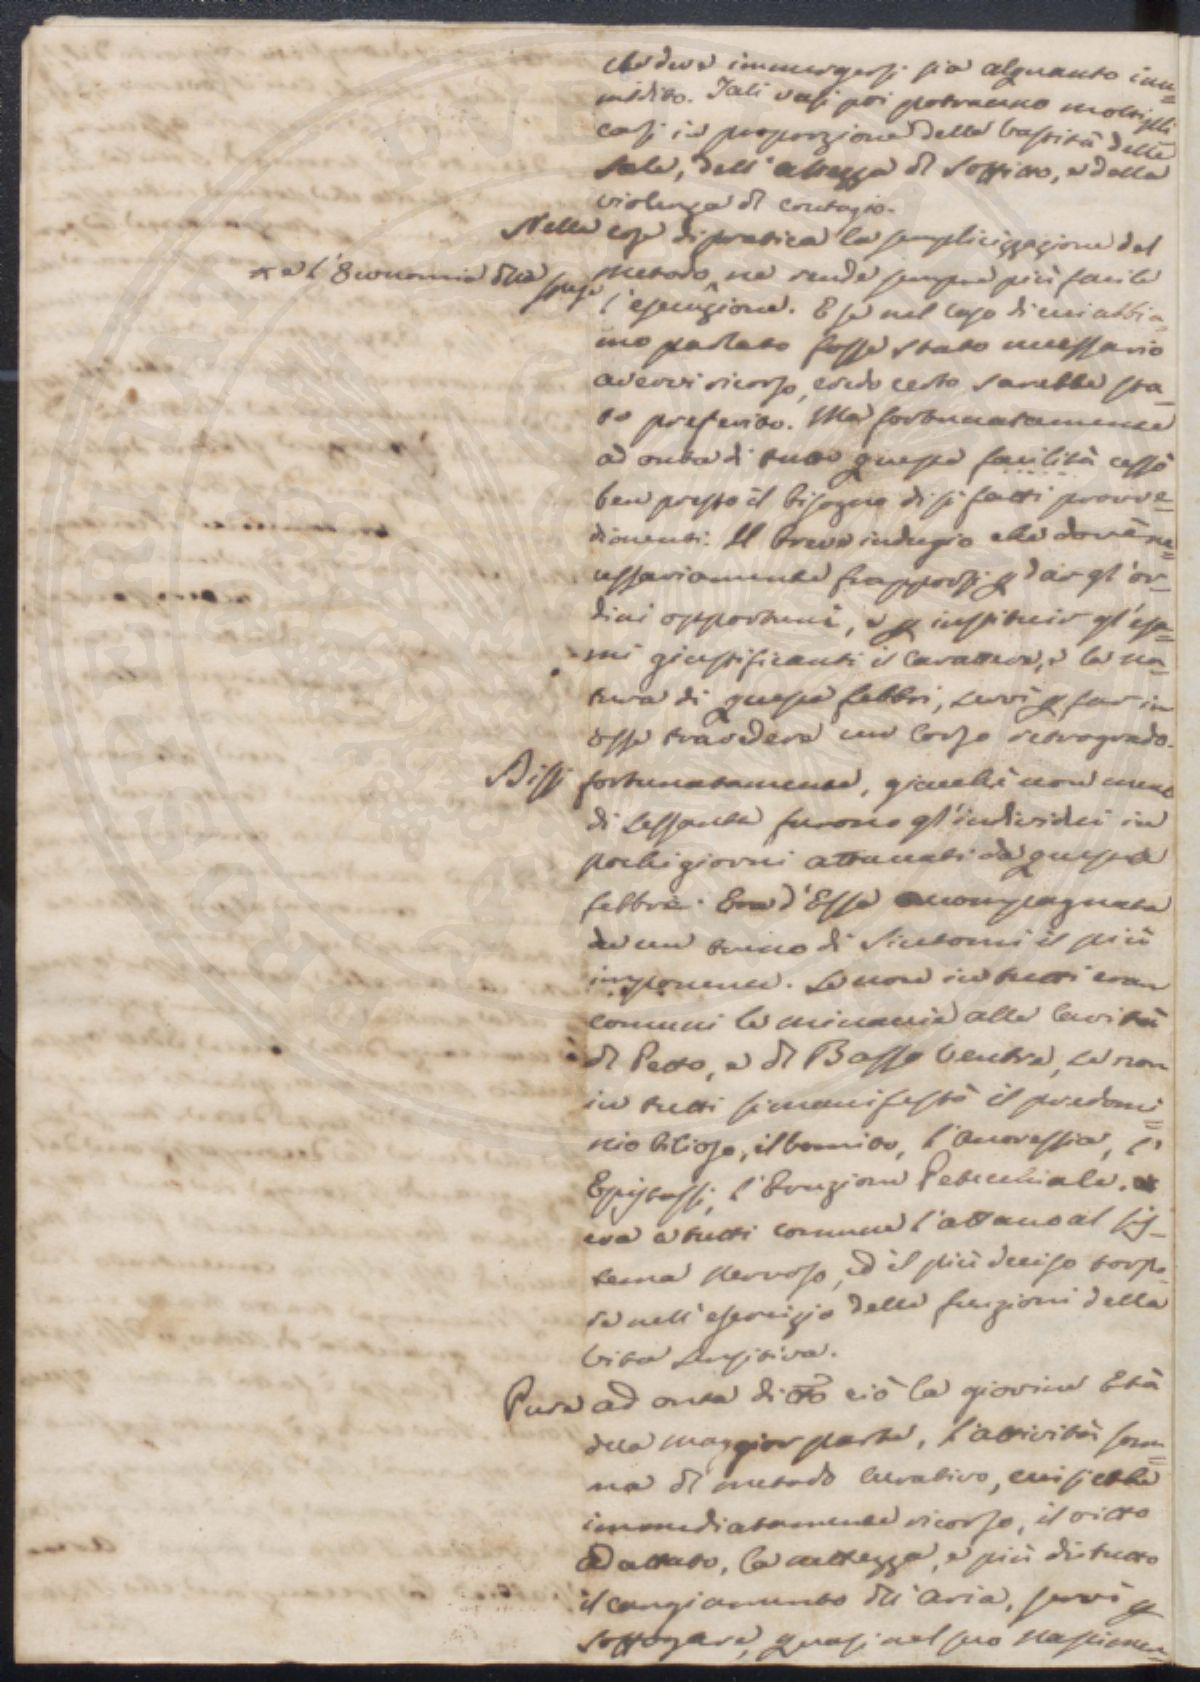 che deve immergersi sia alquanto inu=
midito. Tali vasi poi potranno moltipli
carsi in proporzione della vastità delle
Sale, dell'altezza di Soffitto, e della
violenza di contagio.
Nella cosa di pratica la semplicizzazione del
metodo ne rende sempre più facile
* e l'Economia dlla spesa
l'esecuzione. E se nel caso di cui abbia=
mo parlato fosse stato necessario
avervi ricorso, credo certo sarebbe sta=
to preferito. Ma fortunatamente
ad onta di tutta questa facilità cessò
ben presto il bisogno di sì fatti provve=
dimenti. Il breve indugio che dovè ne=
cessariamente frapporsi p dar gl'or=
dini opportuni, e p instituir gl'esa=
mi giustificanti il carattere, e la na=
tura di queste febbri, servì p far in
esse travedere un corso retrogrado.
Dissi fortunatamente, giacchè non meno
di sessanta furono gl'individui in
pochi giorni attaccati da questa
febbre. Era d'Essa accompagnata
da un treno di Sintomi il più
imponente. Se non in tutti eran
comuni le minaccie alle cavità
di Petto, e di Basso Ventre, se non
in tutti si manifestò il predomi=
nio bilioso, il vomito, l'Anoressia, l'
Epistassi, l'Eruzione Petecchiale,
era a tutti comune l'attacco al Sis=
tema Nervoso, ed il più deciso torpo=
re nell'esercizio delle funzioni della
Vita Sensitiva.
Pure ad onta di tto ciò la giovine Età
dlla maggior parte, l'attività som=
ma di metodo curativo, cui si ebbe
immediatamente ricorso, il vitto
adattato, la nettezza, e più di tutto
il cangiamento dll'aria, servì p
soffogare, quasi nel suo nascimen=